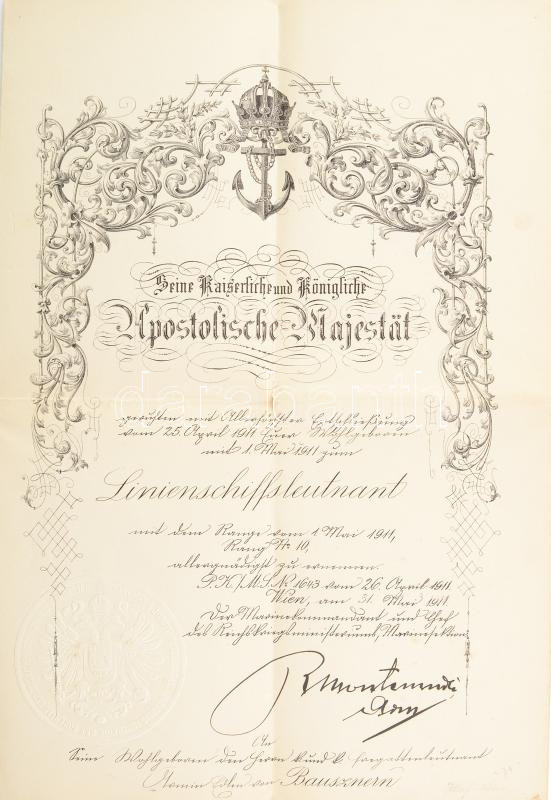 Seine Kaiserliche und Königliche
Apostolische Majestät
geruhten mit Allerhöchster Entschließung
vom 25. April 1911 Euer Wohlgeboren
mit 1. Mai 1911 zum
Linienschiffsleutnant
mit dem Range vom 1. Mai 1911,
Rang Nr. 10,
allergnädigst zu ernennen.
P.K./M.S. Nr. 1643 vom 26. April 1911.
Wien, am 31. Mai 1911.
Der Marinekommandant und Chef
des Reichskriegsministeriums, Marinesektion,
RMontecuccoli
Adm
An
Seine Wohlgeboren den Herrn k. und k. Fregattenleutnant
Armin Edlen von Bausznern